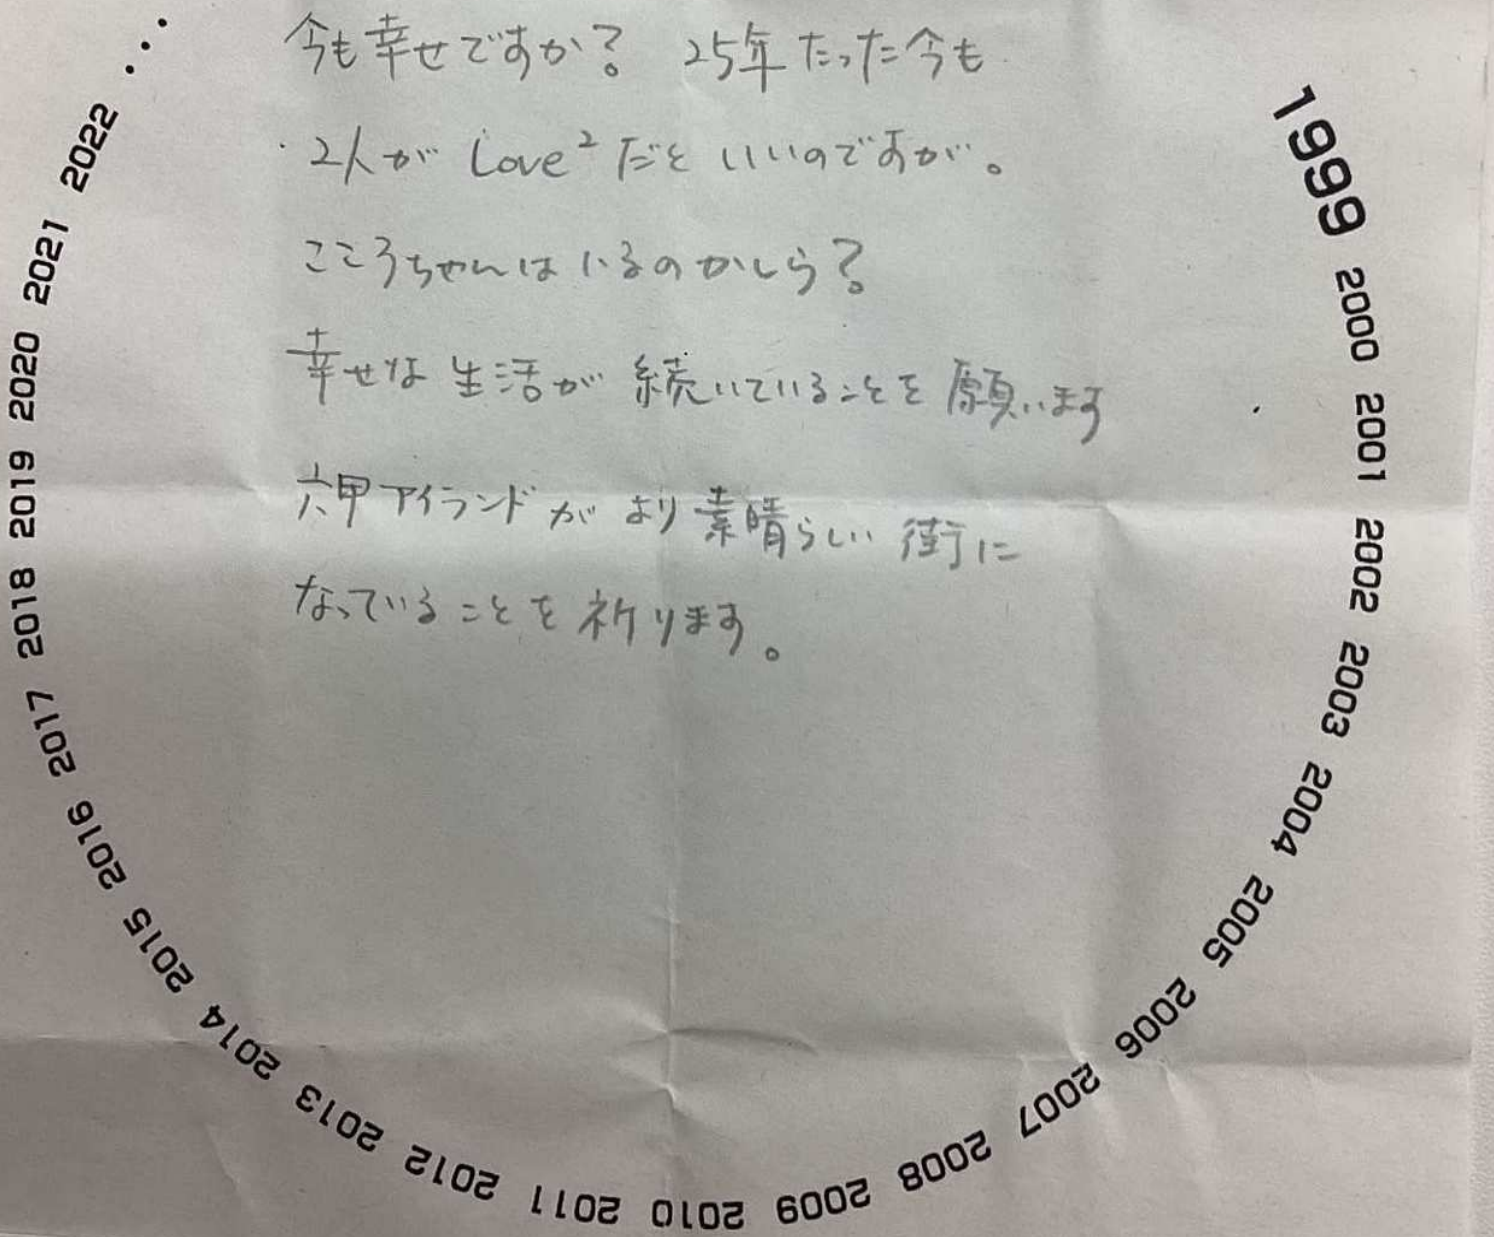 今も幸せですか? 25年たった今も
2人が Love² だといいのですが。
こころちゃんはいるのかしら?
幸せな生活が続いていることを願います
六甲アイランドがより素晴らしい街に
なっていることを祈ります。
1999 2000 2001 2002 2003 2004 2005 2006 2007 2008 2009 2010 2011 2012 2013 2014 2015 2016 2017 2018 2019 2020 2021 2022 ...